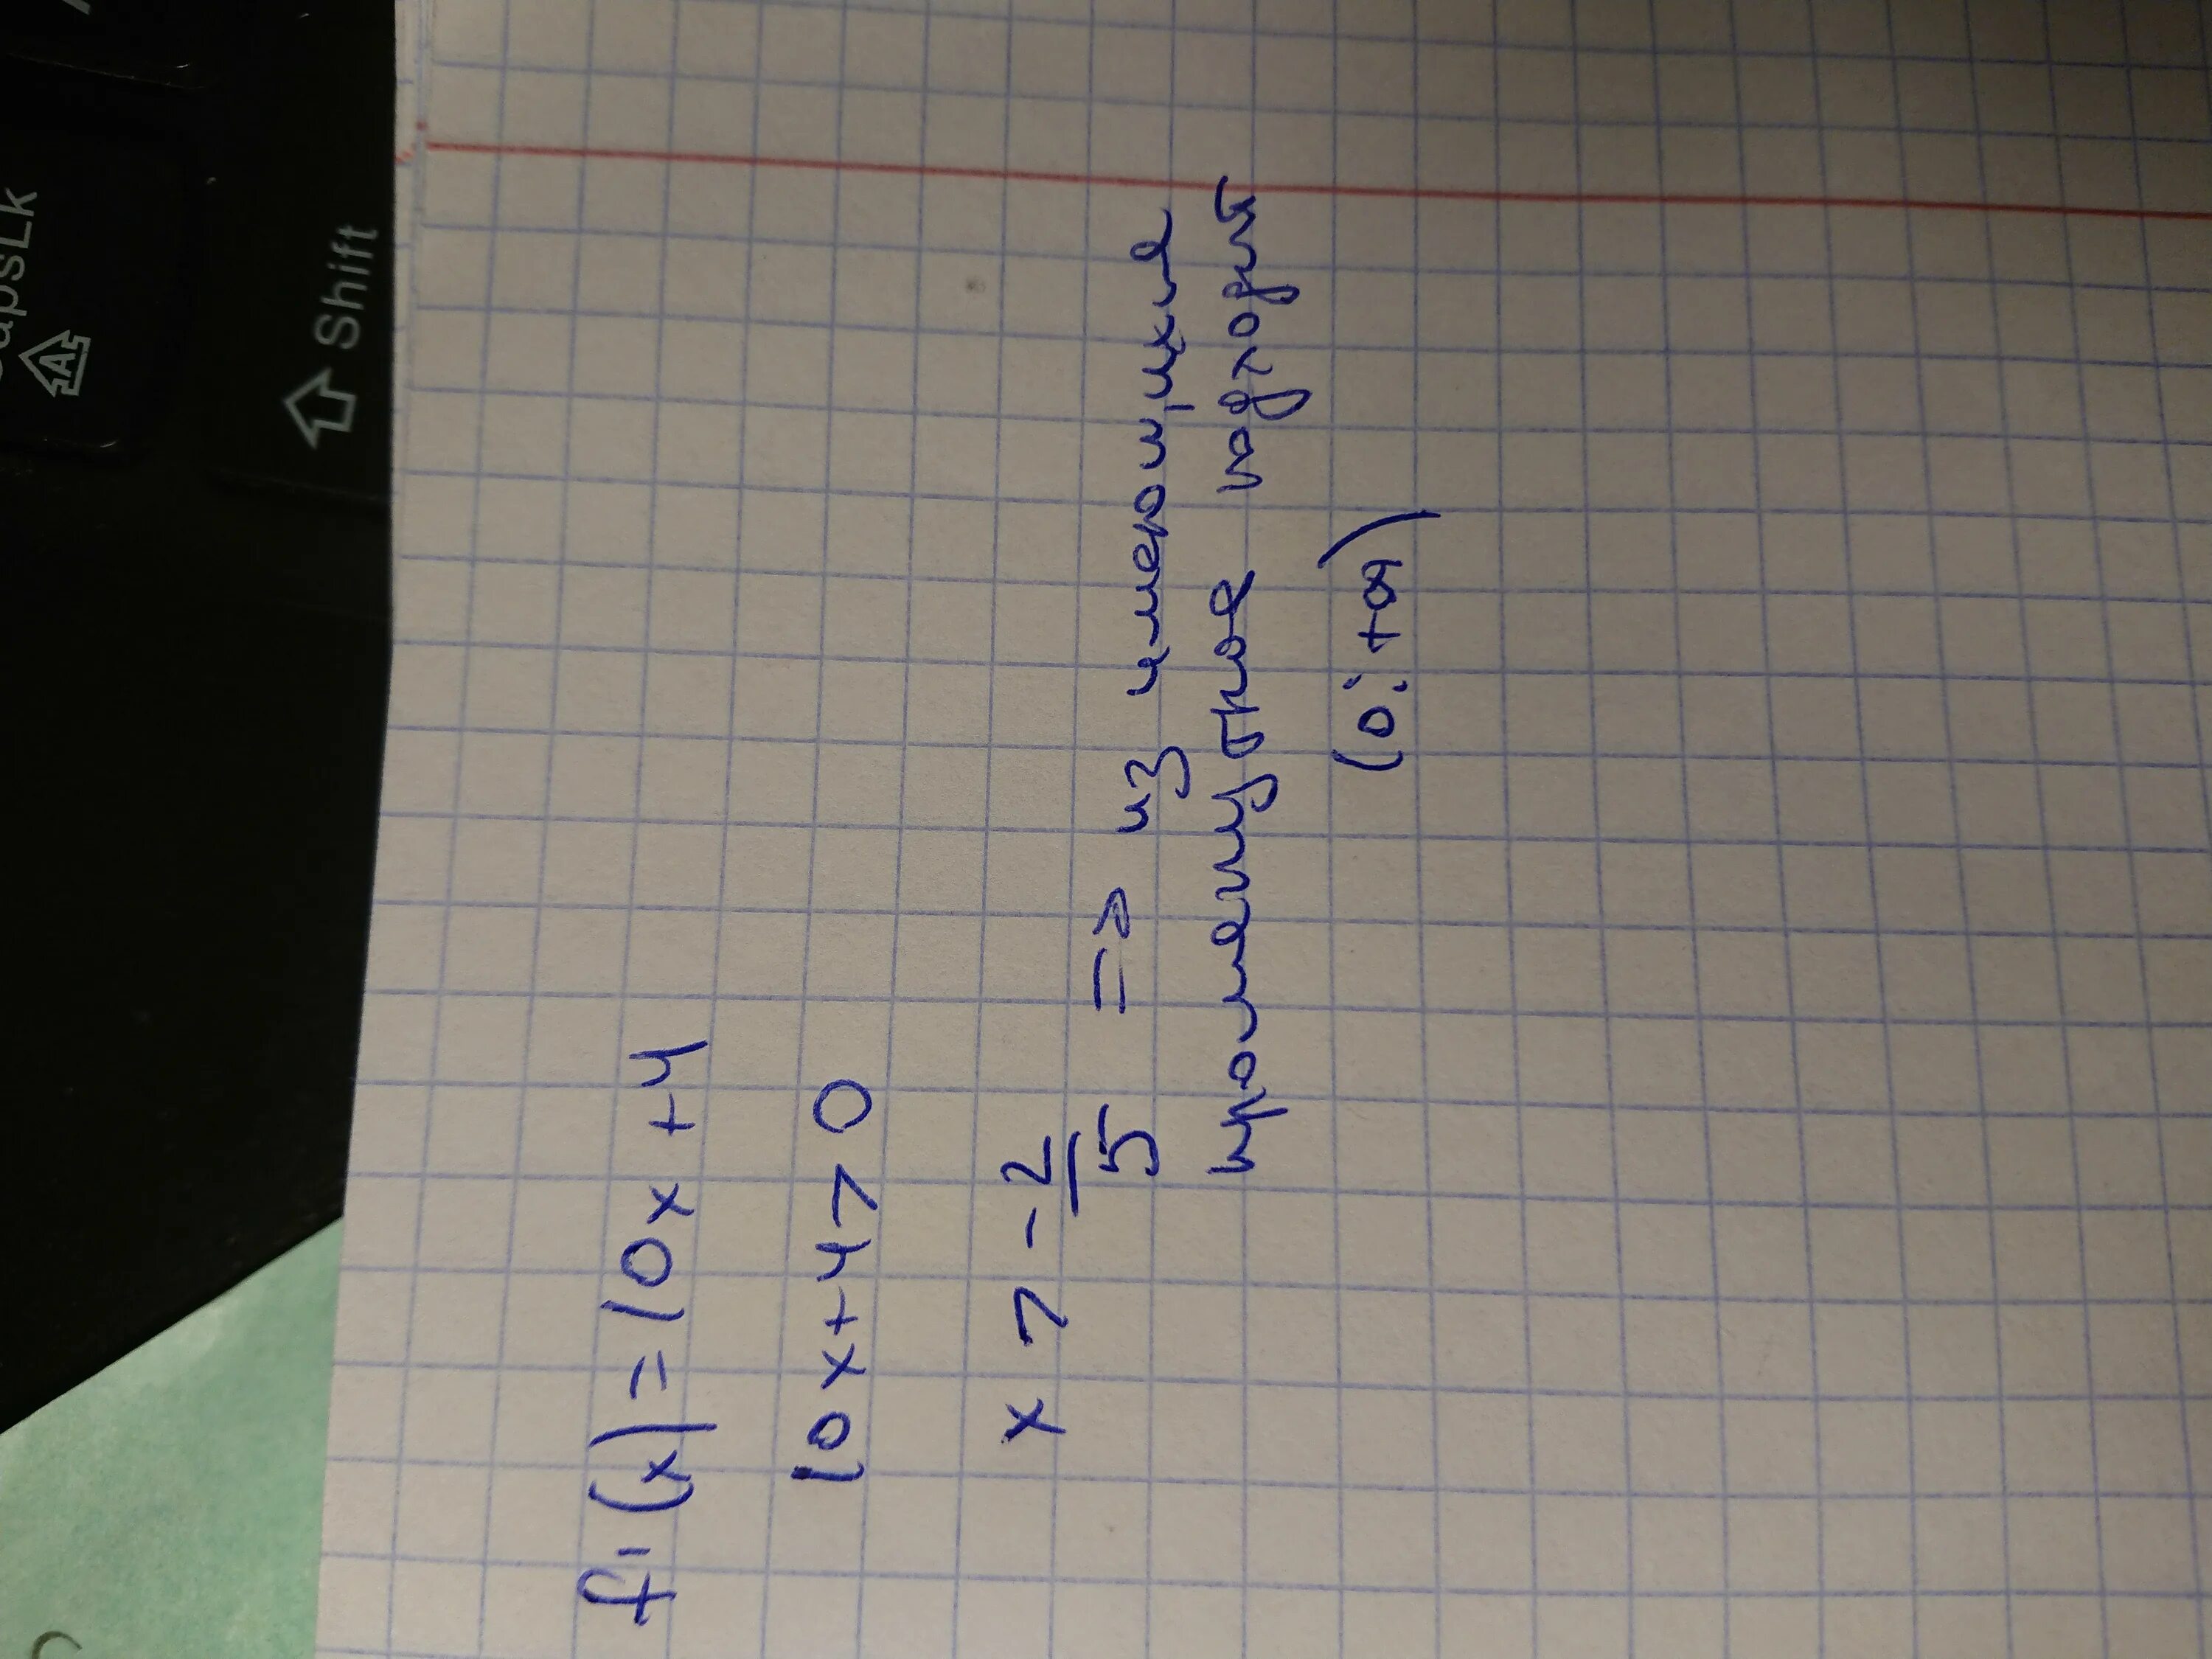 CapsLk
A
Shift
f'(x) = 10x + 4
10x + 4 > 0
x > - 2/5 => из имеющихся
промежутков подходит
(0; +∞)